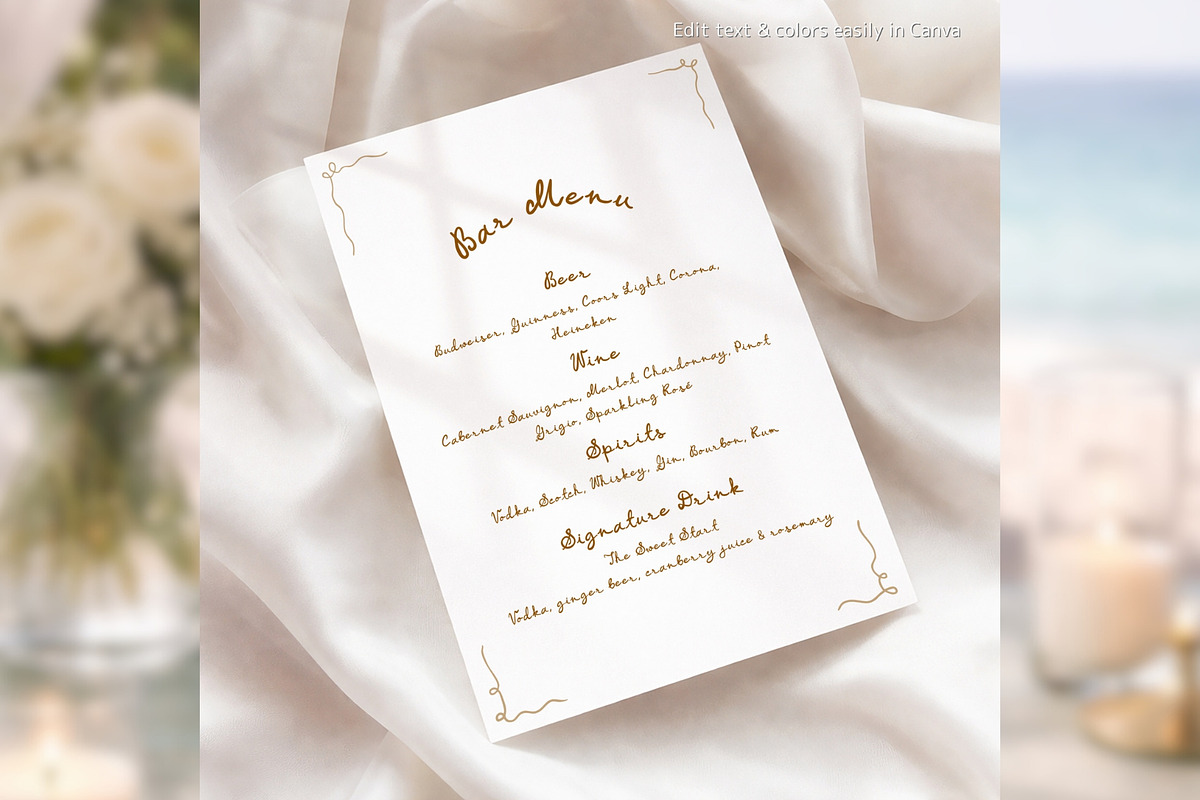 Edit text & colors easily in Canva
Bar Menu
Beer
Budweiser, Guinness, Coors Light, Corona,
Heineken
Wine
Cabernet Sauvignon, Merlot, Chardonnay, Pinot
Grigio, Sparkling Rosé
Spirits
Vodka, Scotch, Whiskey, Gin, Bourbon, Rum
Signature Drink
The Sweet Start
Vodka, ginger beer, cranberry juice & rosemary